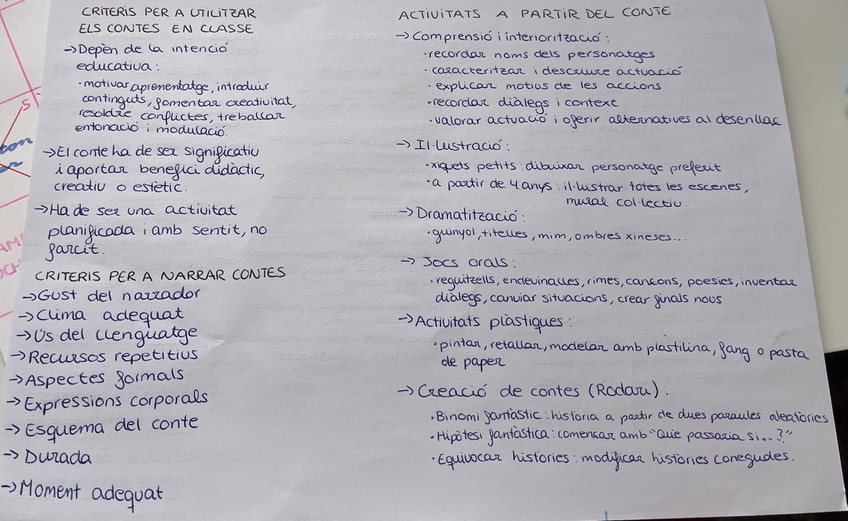 CRITERIS PER A UTILITZAR
ELS CONTES EN CLASSE
→Depèn de la intenció
educativa:
·motivar aprenentatge, introduir
continguts, fomentar creativitat,
resoldre conflictes, treballar
entonació i modulació.
→El conte ha de ser significatiu
i aportar benefici didàctic,
creatiu o estètic.
→Ha de ser una activitat
planificada i amb sentit, no
farcit.
CRITERIS PER A NARRAR CONTES
→Gust del narrador
→Clima adequat
→Ús del llenguatge
→Recursos repetitius
→Aspectes formals
→Expressions corporals
→Esquema del conte
→Durada
→Moment adequat
ACTIVITATS A PARTIR DEL CONTE
→Comprensió i interiorització:
·recordar noms dels personatges
·caracteritzar i descriure actuació
·explicar motius de les accions
·recordar diàlegs i context
·valorar actuació i oferir alternatives al desenllaç
→Il·lustració:
·xiquets petits: dibuixar personatge preferit
·a partir de 4 anys: il·lustrar totes les escenes,
mural col·lectiu.
→Dramatització:
·guinyol, titelles, mim, ombres xineses...
→Jocs orals:
·reguitzells, endevinalles, rimes, cançons, poesies, inventar
diàlegs, canviar situacions, crear finals nous
→Activitats plàstiques:
·pintar, retallar, modelar amb plastilina, fang o pasta
de paper
→Creació de contes (Rodari):
·Binomi fantàstic: història a partir de dues paraules aleatòries
·Hipòtesi fantàstica: començar amb "Què passaria si...?"
·Equivocar històries: modificar històries conegudes.